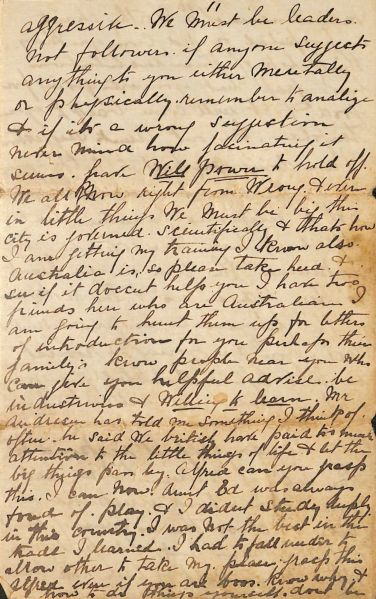 aggressive. We "must be leaders.
not followers. if anyone suggests
anything to you either Mentally
or physically. remember to analize
& if its a wrong suggestion
never mind how facinating it
seems. have Will power to hold off.
We all Know right from Wrong, & even
in little things We Must be big this
city is governed. Scientifically & thats how
I am getting my training I Know also
Australia is, so please take heed. &
see if it doesent help you I have two
friends here who are Australians I
am going to hunt them up for letters
of introduction for you perhaps their
family's know people near you who
can give you helpful advise. be
industrious & Willing to learn. Mr
Andresen has told me something I think of
often. he said We british have paid too much
attention to the little things of life & let the
big things pass by. Alfred can you grasp
this. I can now. Aunt Ed was always
fond of play. & I didnt Study deeply
in this country. I was not the best in the
trade I learned. I had to fall under to
allow other to take my place, grasp this
Alfred even if you are boss. know why &
how to do things yourself. dont be